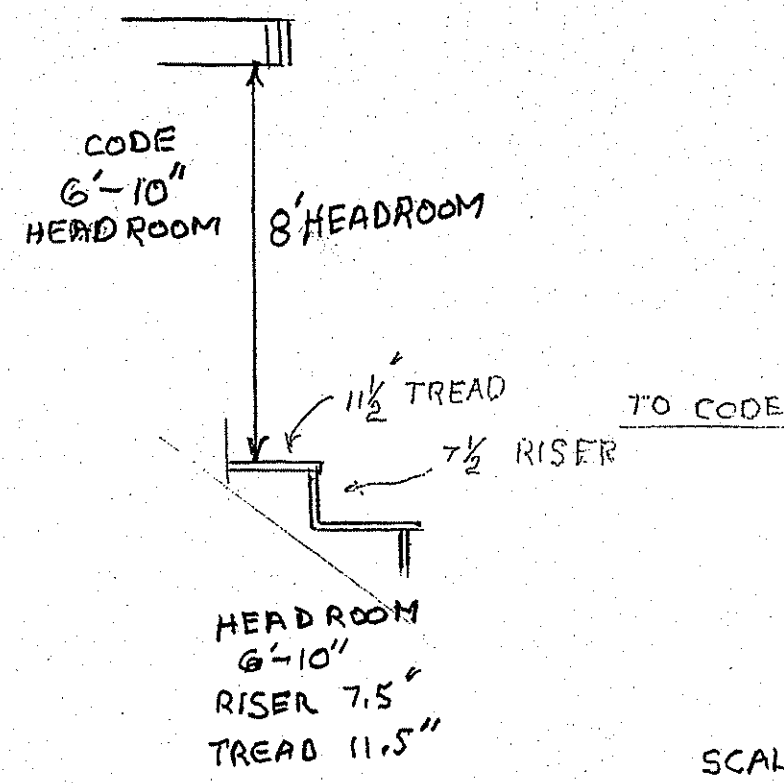 CODE
6'-10"
HEADROOM
8' HEADROOM
11½" TREAD
TO CODE
7½ RISER
HEADROOM
6'-10"
RISER 7.5"
TREAD 11.5"
SCAL